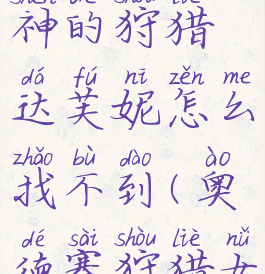 shén de shòu liè
神的狩猎
dá fú nī zěn me
达芙妮怎么
zhǎo bù dào ào
找不到(奥
dé sài shòu liè nǚ
德赛狩猎女